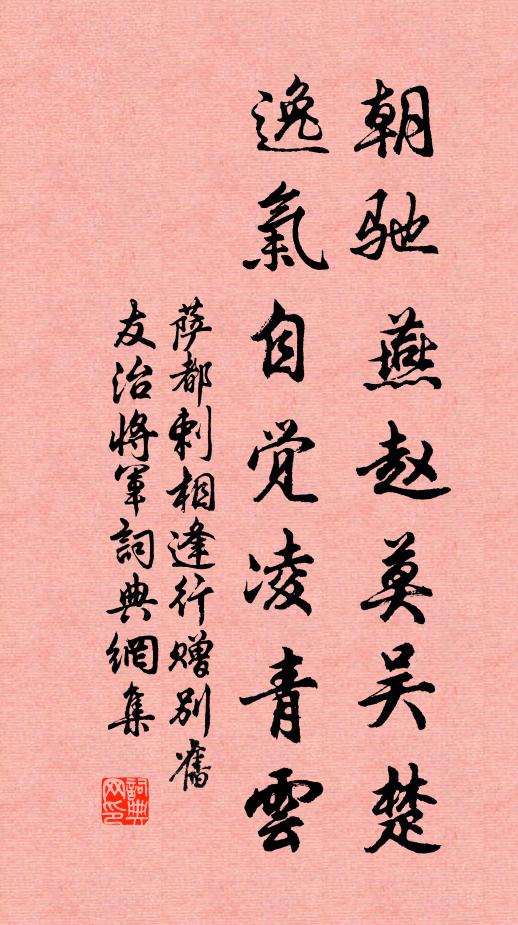 朝驰燕赵莫吴楚
逸氣自觉凌青雲
萨都剌相逢行赠别舊
友治将军詞典網集
詞典
网印